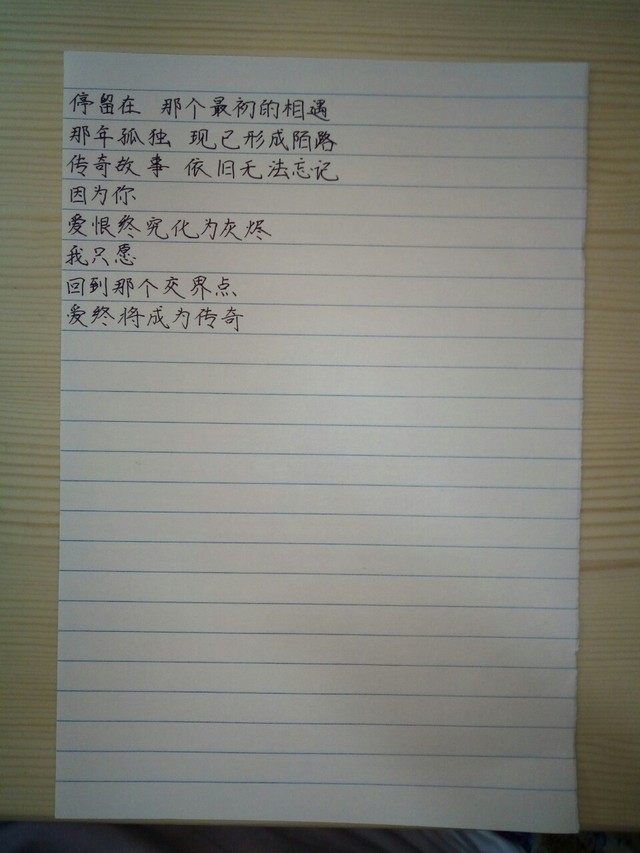 停留在 那个最初的相遇
那年孤独 现已形成陌路
传奇故事 依旧无法忘记
因为你
爱恨终究化为灰烬
我只愿
回到那个交界点
爱终将成为传奇